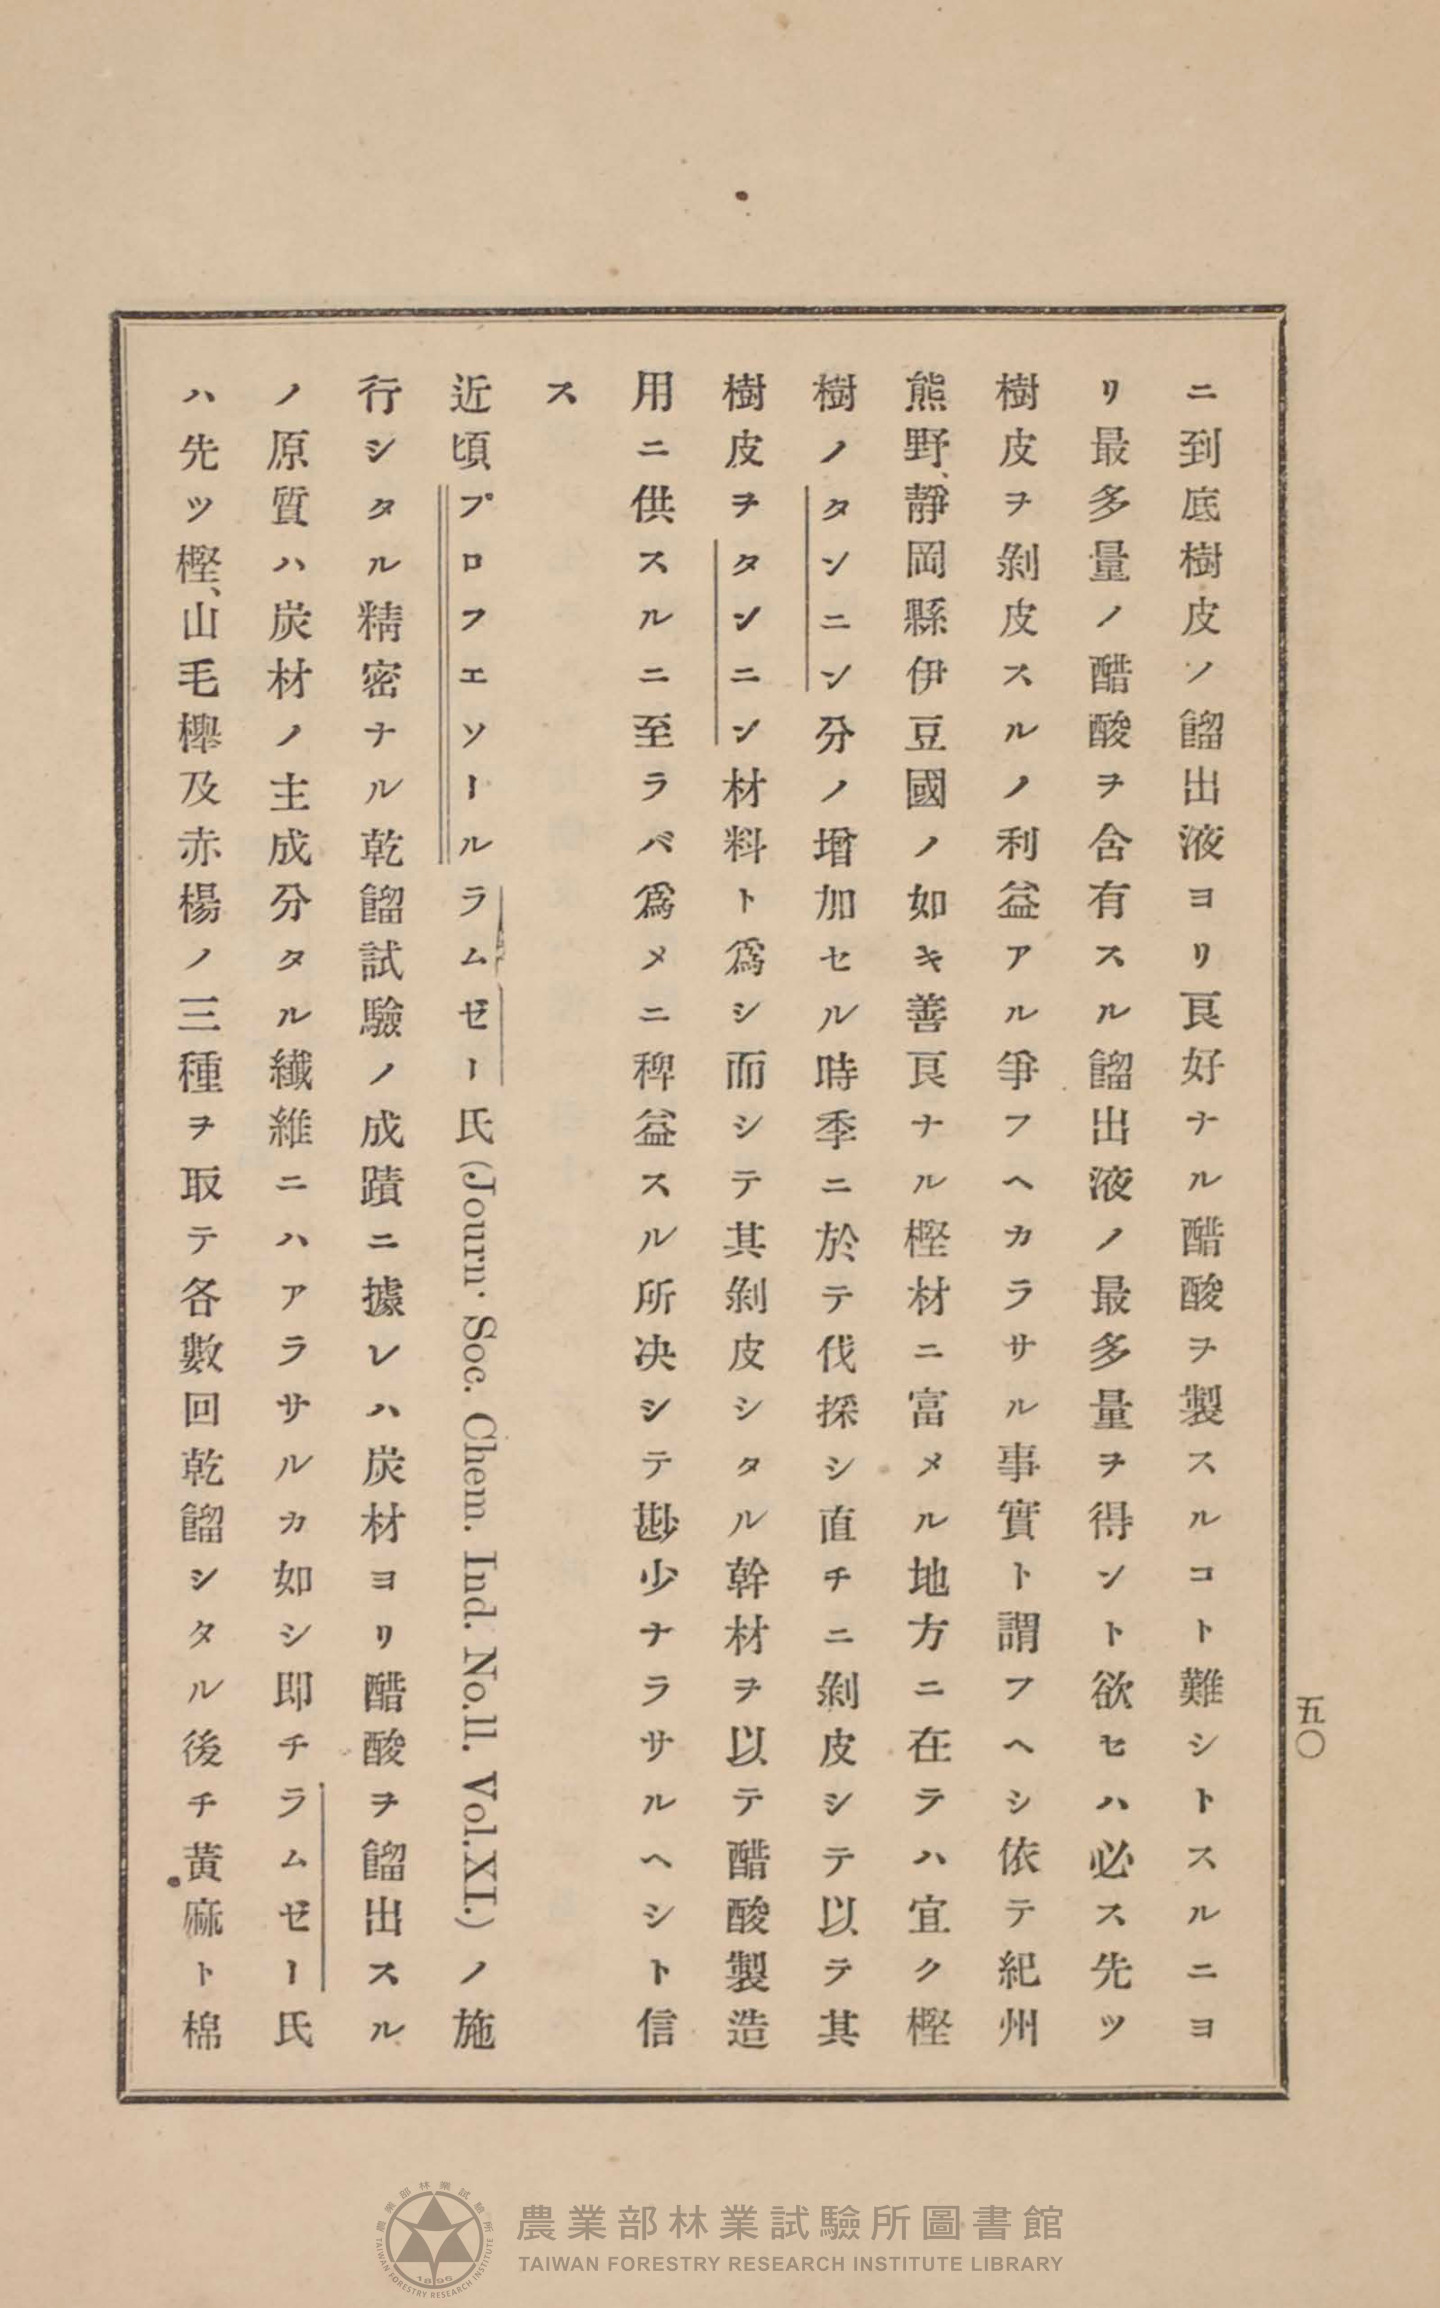 五〇
ニ到底樹皮ノ餾出液ヨリ良好ナル醋酸ヲ製スルコト難シトスルニヨ
リ最多量ノ醋酸ヲ含有スル餾出液ノ最多量ヲ得ント欲セハ必ス先ツ
樹皮ヲ剝皮スルノ利益アル爭フヘカラサル事實ト謂フヘシ依テ紀州
熊野、靜岡縣伊豆國ノ如キ善良ナル樫材ニ富メル地方ニ在テハ宜ク樫
樹ノタンニン分ノ增加セル時季ニ於テ伐採シ直チニ剝皮シテ以テ其
樹皮ヲタンニン材料ト爲シ而シテ其剝皮シタル幹材ヲ以テ醋酸製造
用ニ供スルニ至ラバ爲メニ稗益スル所决シテ尠少ナラサルヘシト信
ス
近頃プロフエソールラムゼー氏(Journ. Soc. Chem. Ind. No.11. Vol.XI.)ノ施
行シタル精密ナル乾餾試驗ノ成蹟ニ據レハ炭材ヨリ醋酸ヲ餾出スル
ノ原質ハ炭材ノ主成分タル纎維ニハアラサルカ如シ即チラムゼー氏
ハ先ツ樫、山毛欅及赤楊ノ三種ヲ取テ各數回乾餾シタル後チ黃麻ト棉
農業部林業試驗所圖書館
TAIWAN FORESTRY RESEARCH INSTITUTE LIBRARY
農業部林業試驗所
TAIWAN FORESTRY RESEARCH INSTITUTE
1896